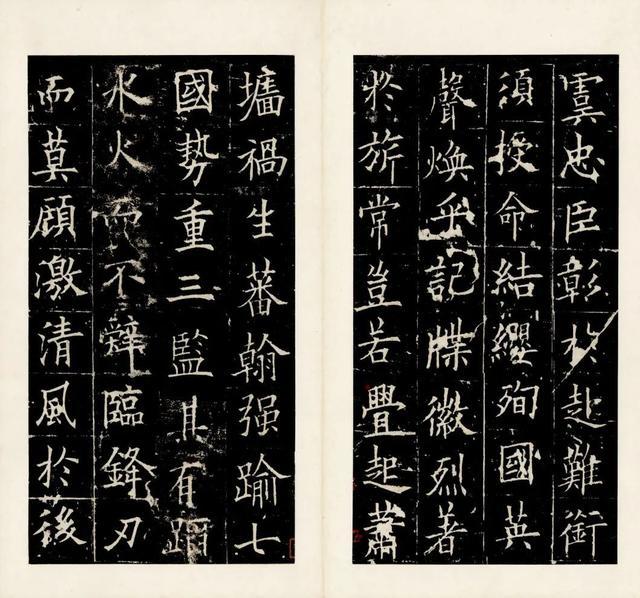 雲忠臣彰於赴難銜
須授命結纓殉國英
聲煥乎記牒徽烈著
於旂常豈若舋起蕭
墻禍生蕃翰强踰七
國勢重三監其有蹈
水火而不辭臨鋒刃
而莫顧激清風於後